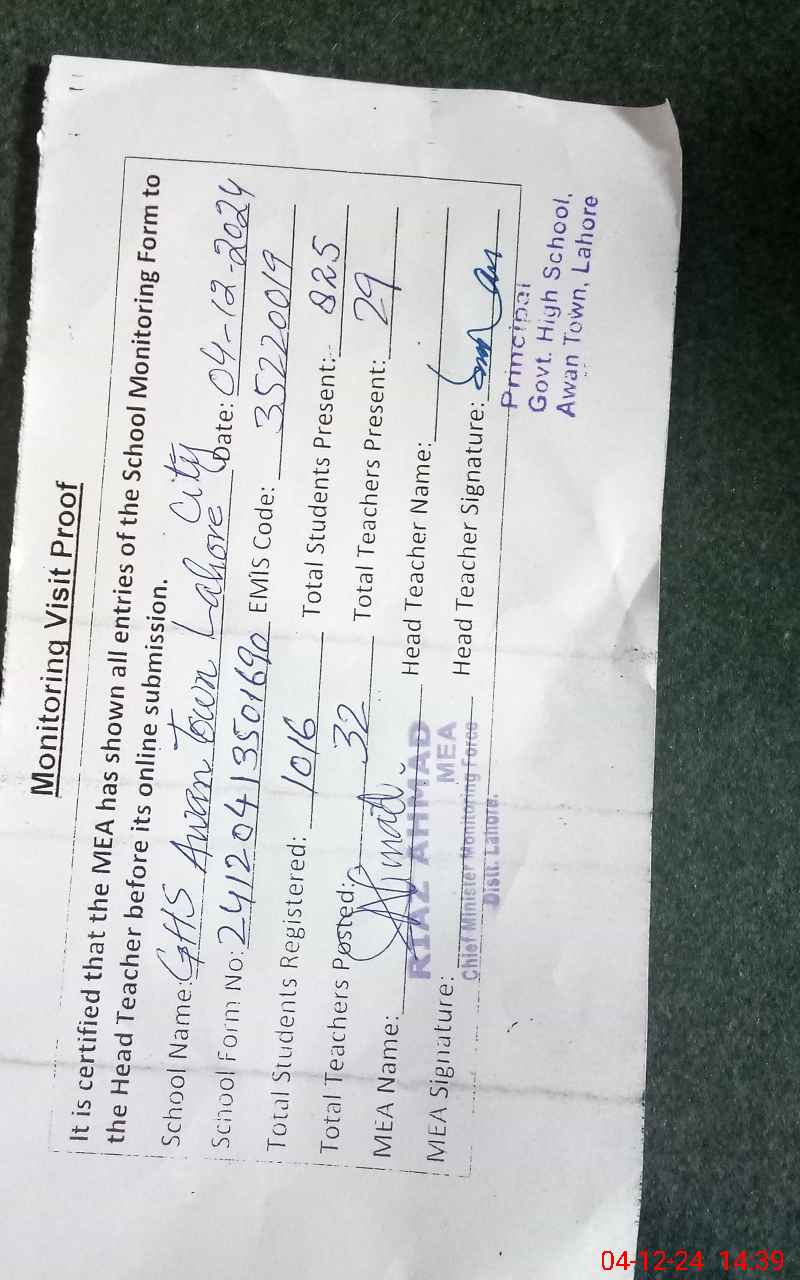 Monitoring Visit Proof
It is certified that the MEA has shown all entries of the School Monitoring Form to
the Head Teacher before its online submission.
School Name: GHS Awan Town Lahore City Date: 04-12-2024
School Form No: 24120413501690 EMIS Code: 35220019
Total Students Registered: 1016 Total Students Present: 825
Total Teachers Posted: 32 Total Teachers Present: 29
MEA Name: RIAZ AHMAD Head Teacher Name:
MEA
MEA Signature: Head Teacher Signature:
Chief Minister Monitoring Force
Distt. Lahore.
Principal
Govt. High School,
Awan Town, Lahore
04-12-24 14:39